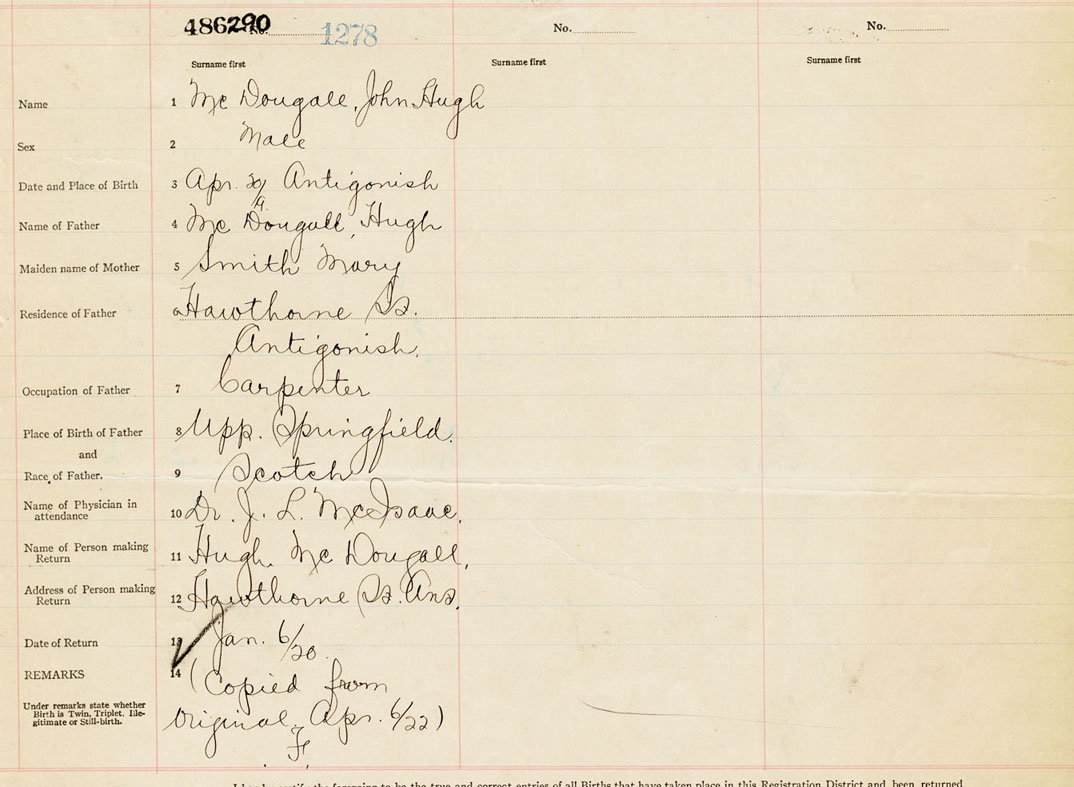 486290 No. 1278 No. No.
Surname first Surname first Surname first
Name 1 Mc Dougall, John Hugh
Sex 2 Male
Date and Place of Birth 3 Apr. Antigonish
Name of Father 4 Mc Dougall, Hugh
Maiden name of Mother 5 Smith Mary
Residence of Father 6 Hawthorne St.
Antigonish.
Occupation of Father 7 Carpenter
Place of Birth of Father 8 Upp. Springfield.
and
Race of Father. 9 Scotch
Name of Physician in
attendance 10 Dr. J. L. McIsaac.
Name of Person making
Return 11 Hugh Mc Dougall,
Address of Person making
Return 12 Hawthorne St. Ant.
Date of Return 13 Jan. 6/20
REMARKS 14 (Copied from
Under remarks state whether
Birth is Twin, Triplet, Ille-
gitimate or Still-birth.
Original. Apr. 6/22)
I hereby certify the foregoing to be the true and correct entries of all Births that have taken place in this Registration District and been returned